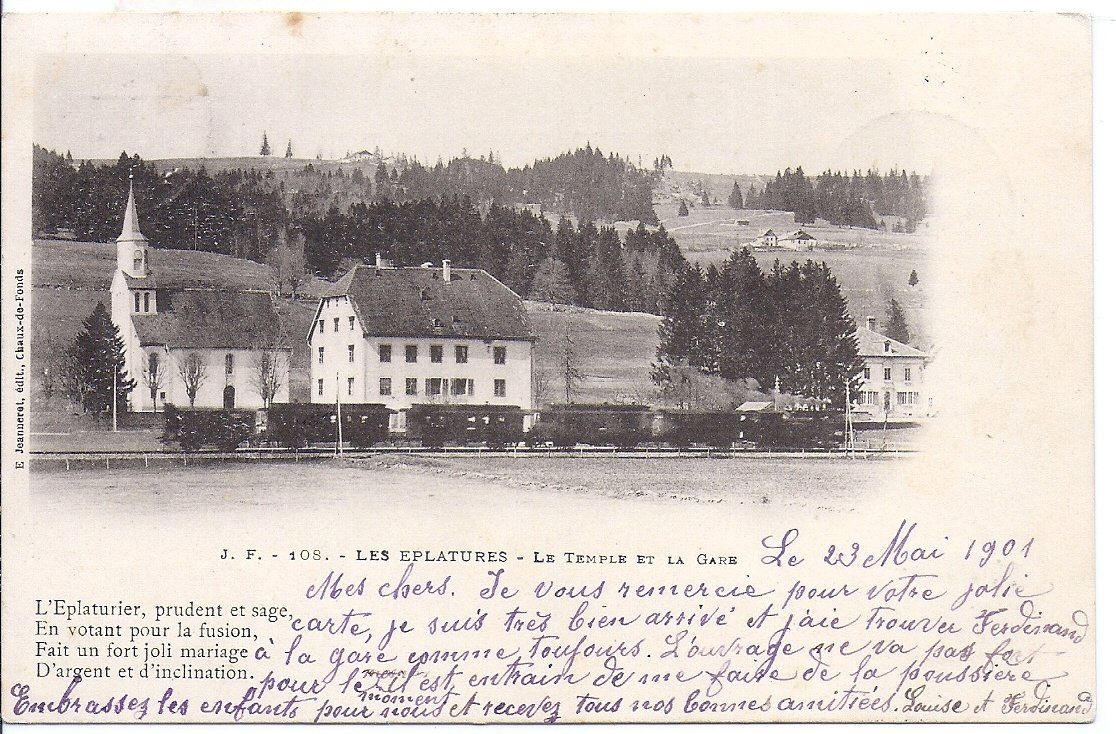 E. Jeanneret, édit., Chaux-de-Fonds
J. F. - 108. - LES EPLATURES - LE TEMPLE ET LA GARE
Le 23 Mai 1901
L'Eplaturier, prudent et sage,
En votant pour la fusion,
Fait un fort joli mariage
D'argent et d'inclination.
Mes chers. Je vous remercie pour votre jolie
carte, je suis très bien arrivé et j'aie trouver Ferdinand
à la gare comme toujours. L'ouvrage ne va pas fort
pour le moment il est entrain de me faire de la poussière
Embrassez les enfants pour nous et recevez tous nos bonnes amitiées. Louise et Ferdinand